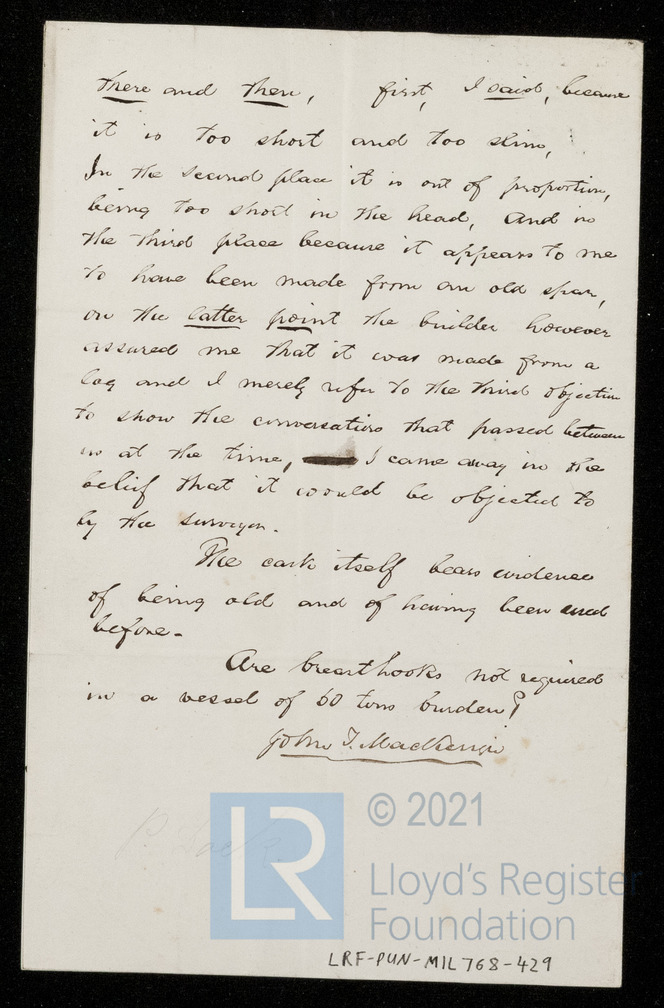 there and then, first, I said, because
it is too short and too slim,
In the second place it is out of proportion,
being too short in the head, and in
the third place because it appears to me
to have been made from an old spar,
on the latter point the builder however
assured me that it was made from a
log and I merely refer to the third objection
to show the conversation that passed between
us at the time, I came away in the
belief that it would be objected to
by the surveyor.
The cask itself bears evidence
of being old and of having been used
before.
Are breasthooks not required
in a vessel of 60 tons burden?
John T. MacKenzie
© 2021
LR
Lloyd's Register
Foundation
LRF-PUN-MIL768-429